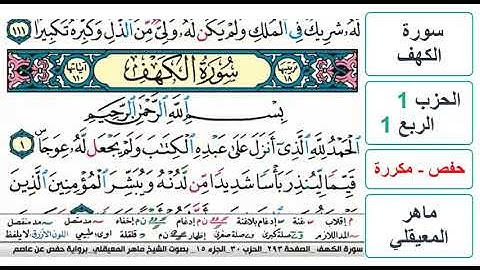 لَّهُۥ شَرِيكٌ فِى ٱلْمُلْكِ وَلَمْ يَكُن لَّهُۥ وَلِىٌّ مِّنَ ٱلذُّلِّ وَكَبِّرْهُ تَكْبِيرًا ١١١
سُورَةُ الكَهْفِ
بِسْمِ ٱللَّهِ ٱلرَّحْمَٰنِ ٱلرَّحِيمِ
ٱلْحَمْدُ لِلَّهِ ٱلَّذِىٓ أَنزَلَ عَلَىٰ عَبْدِهِ ٱلْكِتَٰبَ وَلَمْ يَجْعَل لَّهُۥ عِوَجَاۜ ١
قَيِّمًا لِّيُنذِرَ بَأْسًا شَدِيدًا مِّن لَّدُنْهُ وَيُبَشِّرَ ٱلْمُؤْمِنِينَ ٱلَّذِينَ
سورة الكهف الصفحة ٢٩٣ الحزب ٣٠ الجزء ١٥ بصوت الشيخ ماهر المعيقلي برواية حفص عن عاصم
سورة
الكهف
الحزب 1
الربع 1
حفص - مكررة
ماهر
المعيقلي